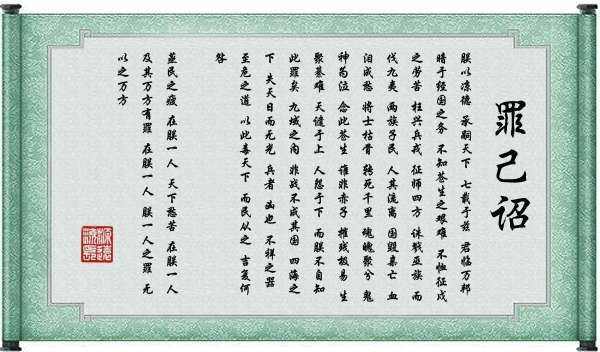 罪己诏
朕以凉德 承嗣天下 七载于兹 君临万邦
暗于经国之务 不知苍生之艰难 不恤征戍
之劳苦 枉兴兵戎 征师四方 诛戮巫族 而
伐九夷 两族子民 人其流离 国毁弃亡 血
泪成愁 将士枯骨 转死千里 魂魄聚兮 鬼
神苟泣 念此苍生 谁非赤子 摧残极易 生
聚綦难 天谴于上 人怨于下 而朕不自知
此罪矣 九域之内 非战不成其国 四海之
下 失天日而无光 兵者 凶也 不祥之器
至危之道 以此毒天下 而民从之 吉复何
咎
蒸民之疲 在朕一人 天下愁苦 在朕一人
及其万方有罪 在朕一人 朕一人之罪 无
以之万方